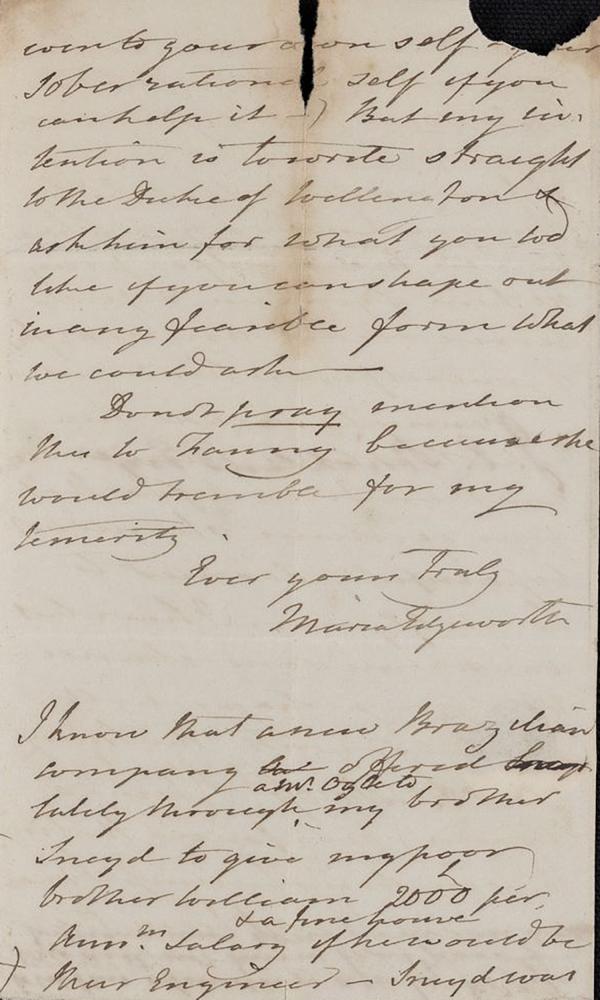 even to your own self - your
sober rational self if you
can help it -) But my in-
tention is to write straight
to the Duke of Wellington &
ask him for what you wd
like if you can shape out
in any feasible form what
we could ask
Do not pray mention
this to Fanny because she
would tremble for my
temerity.
Ever yours Truly
Maria Edgeworth
I know that a new Brazilian
company offered
a Mr.
lately through my brother
Sneyd to give my poor
brother William 2000 per
& a fine house
Annm. Salary if he would be
their Engineer - Sneyd was